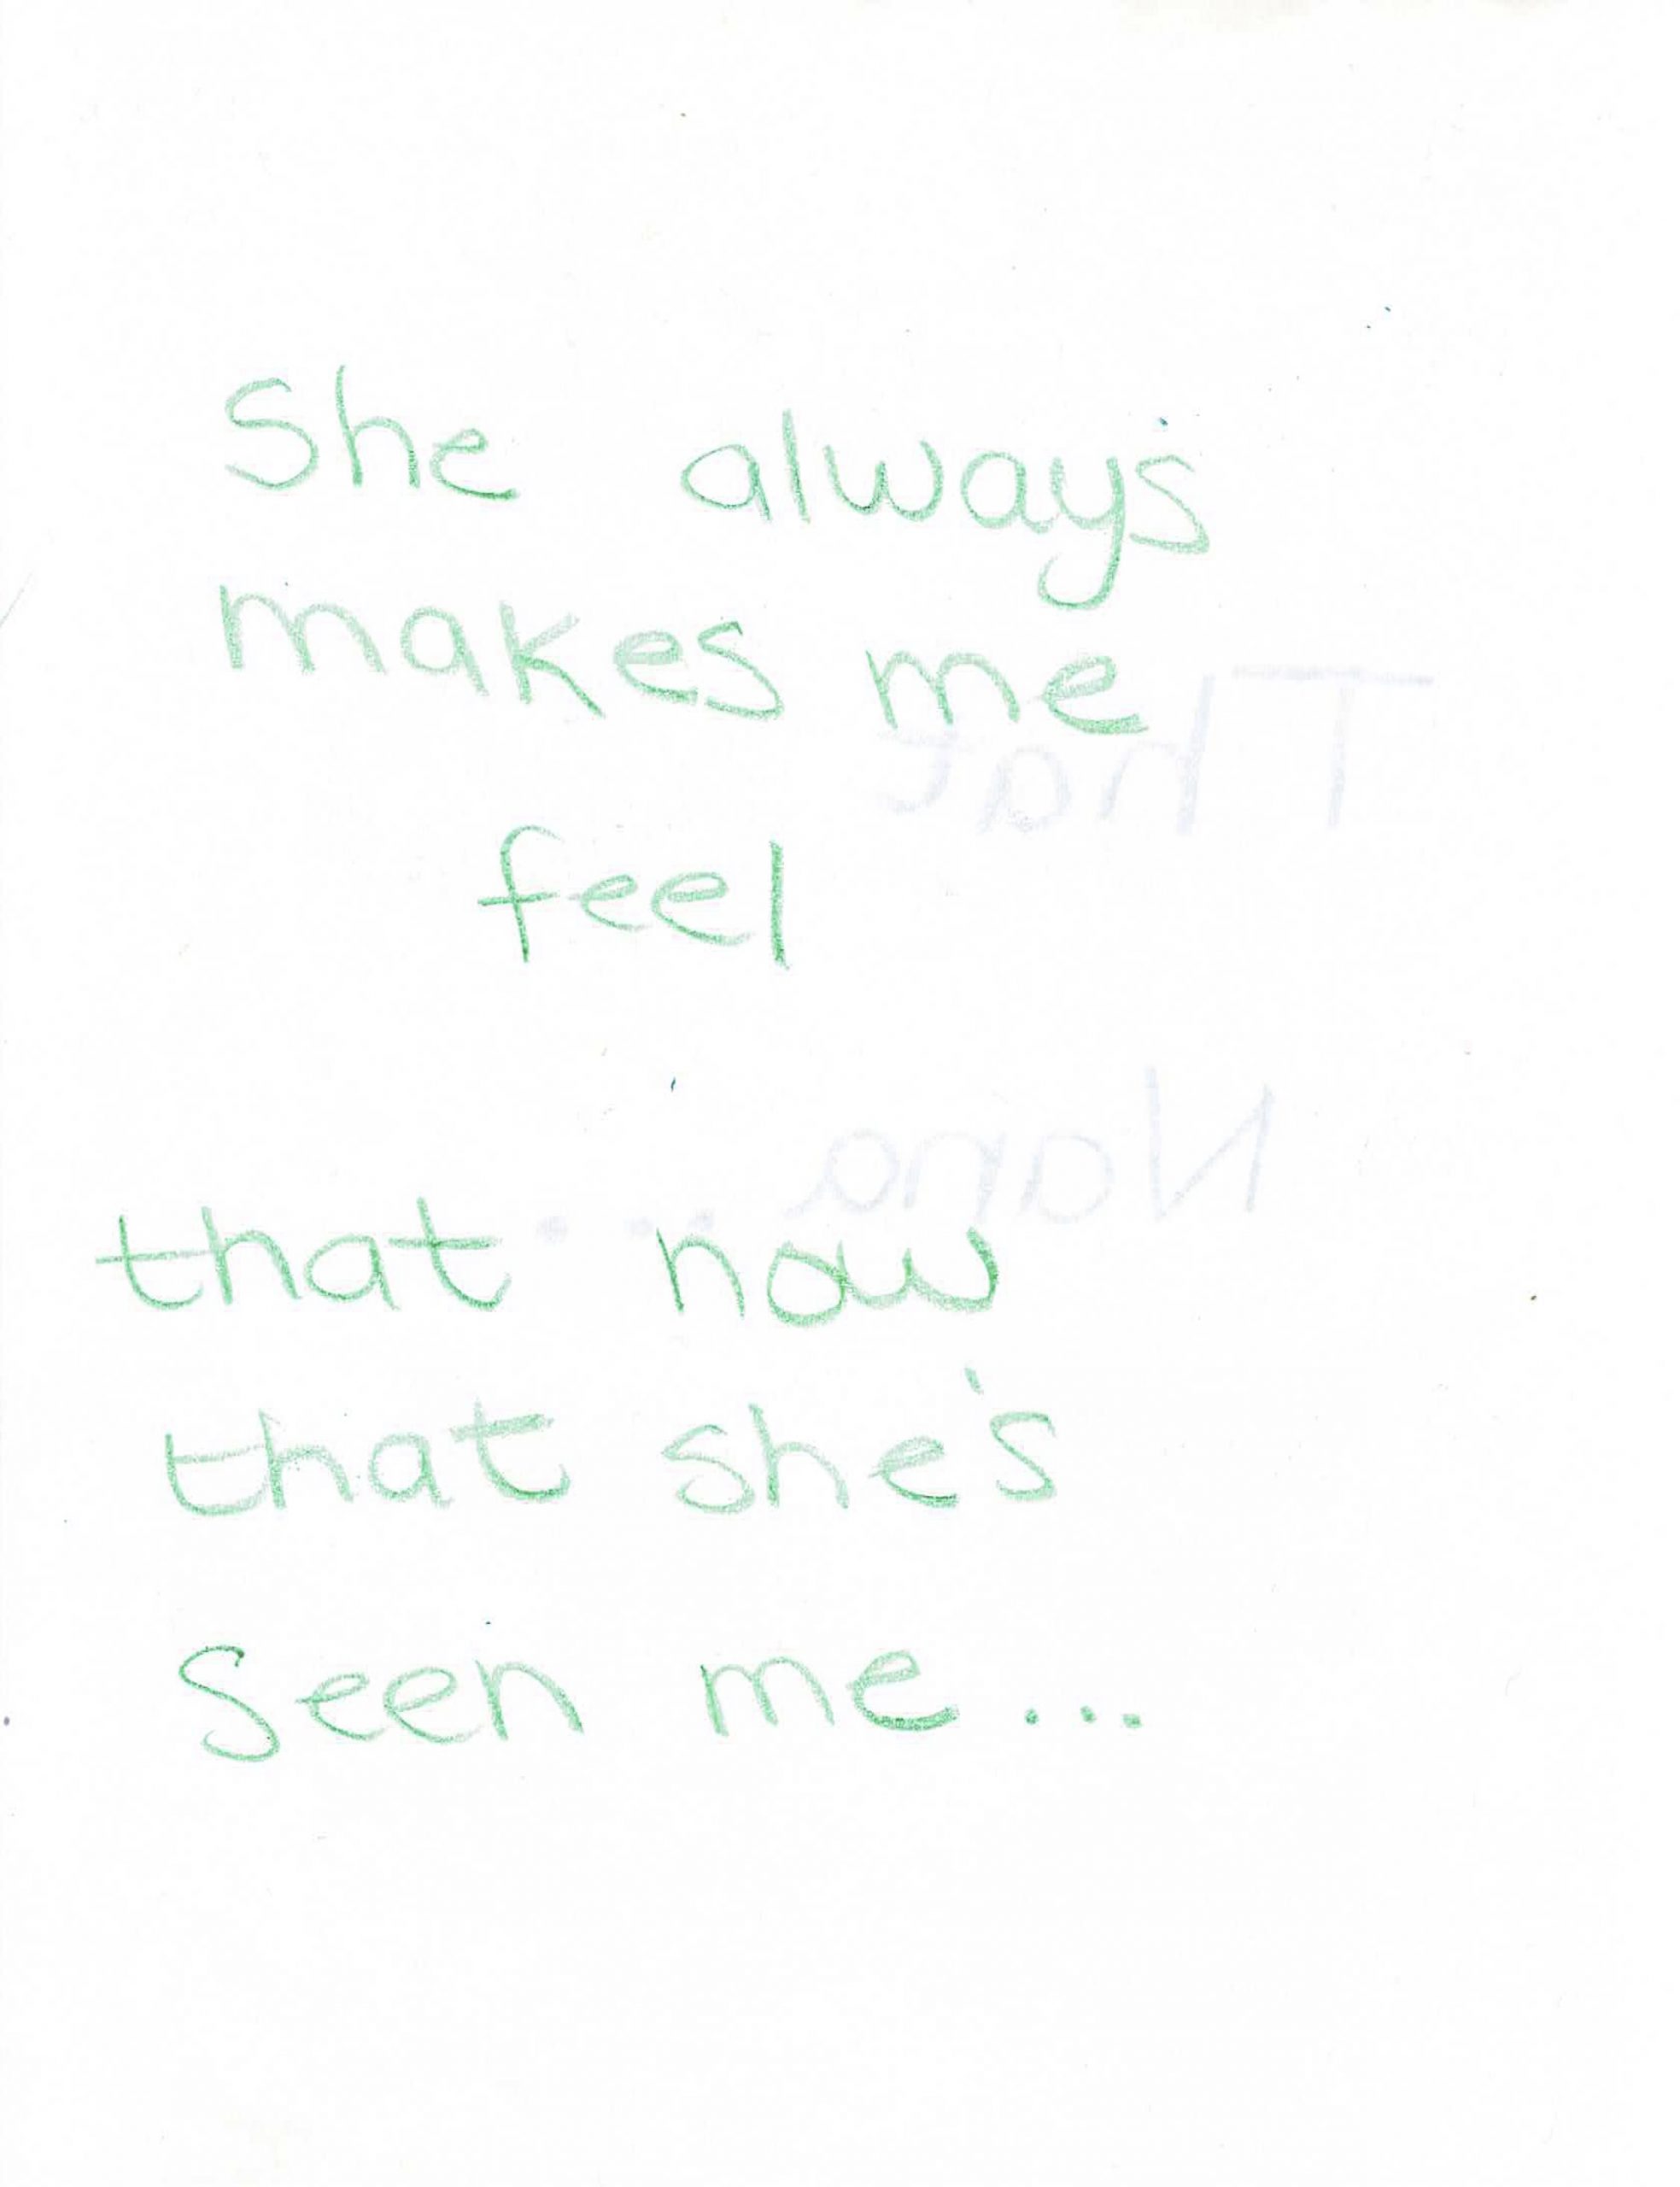 She always
makes me
feel
that now
that she's
seen me...
That
Nana...